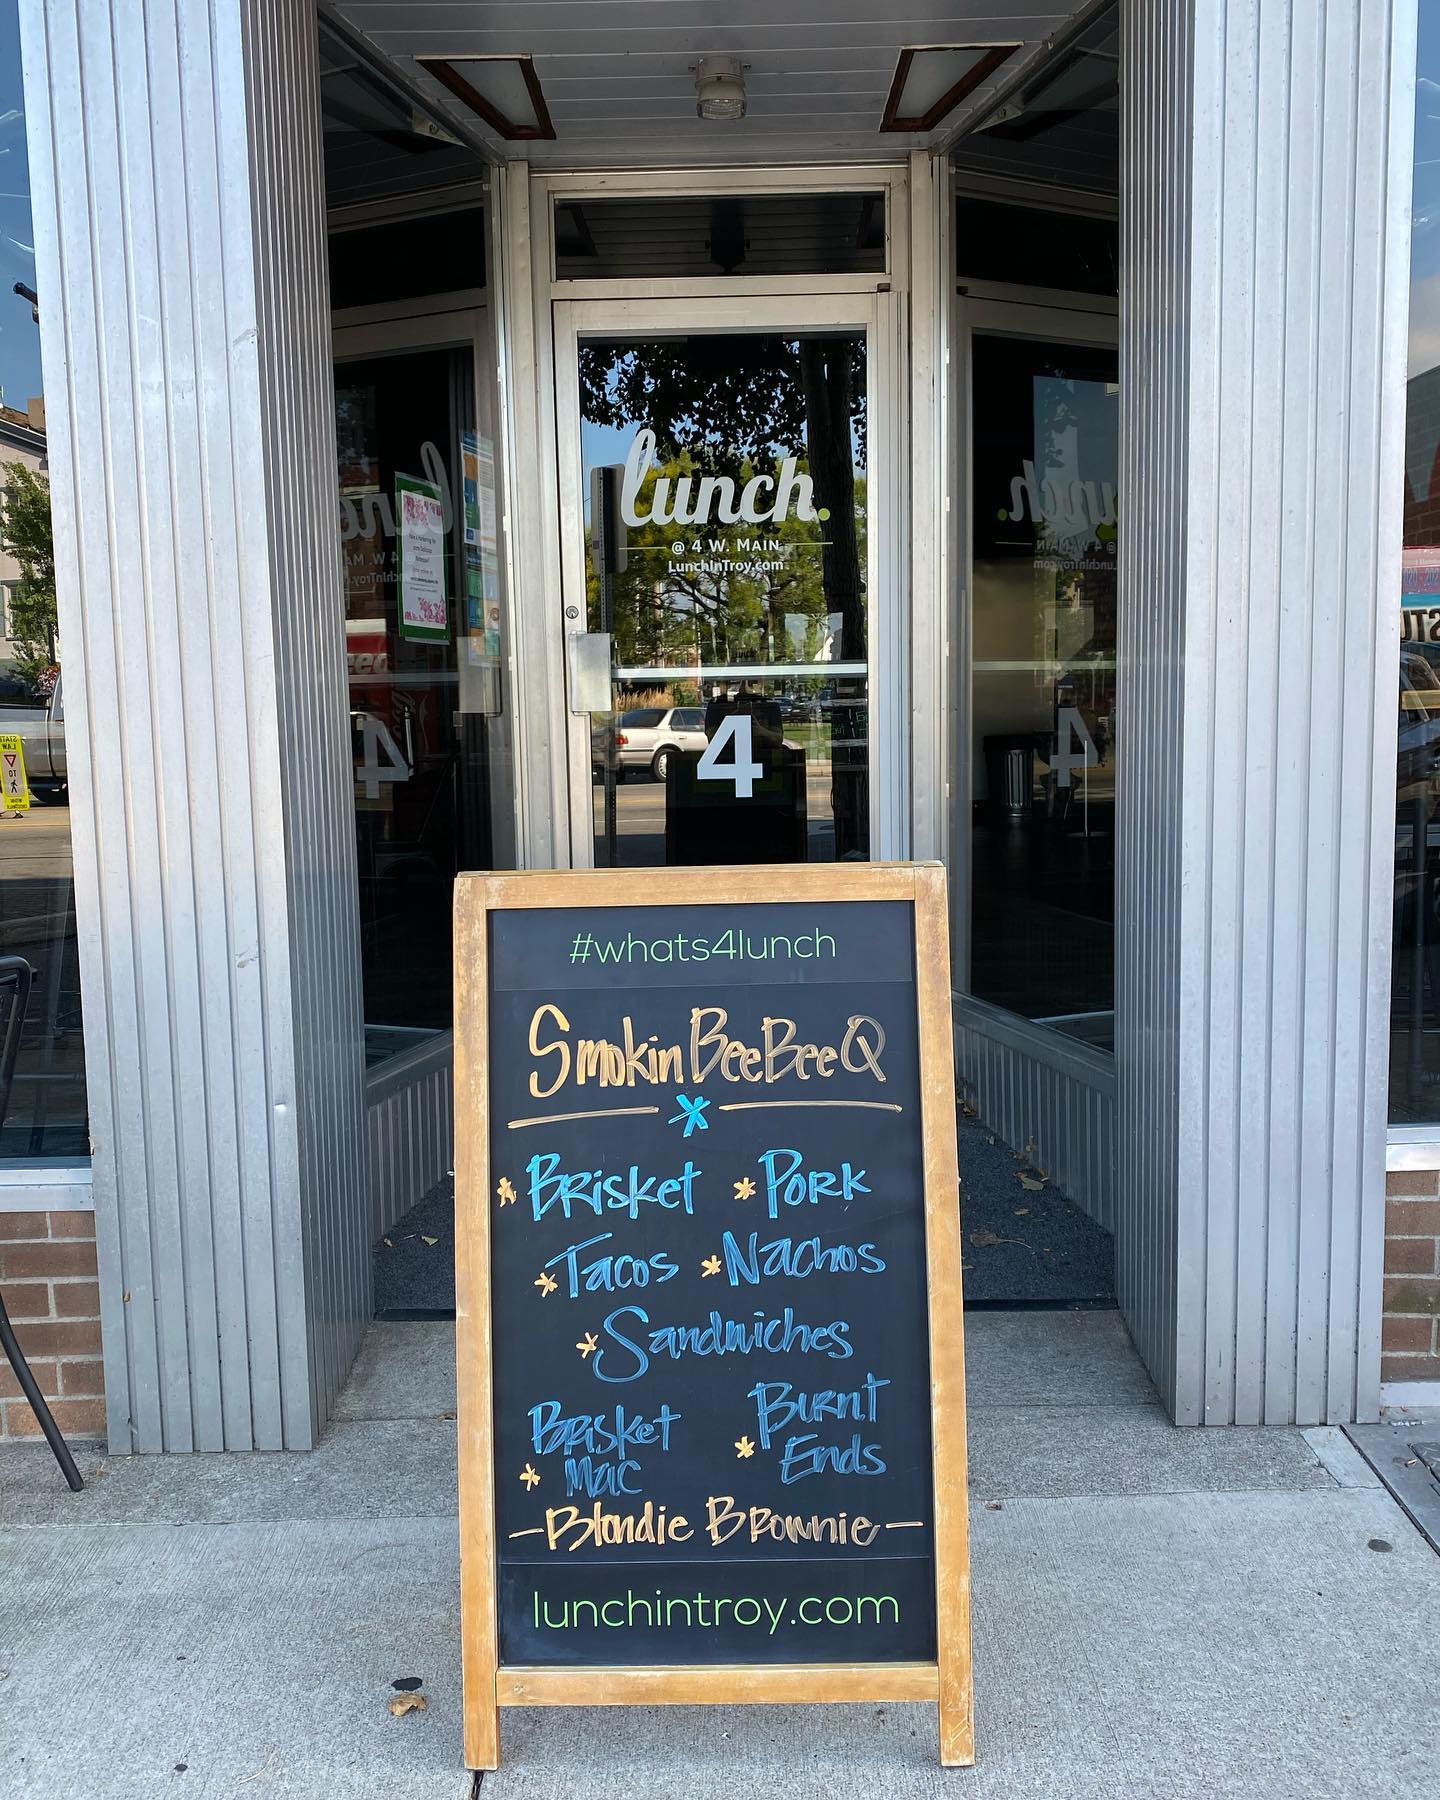 lunch.
@ 4 W. MAIN
LunchInTroy.com
4
#whats4lunch
Smokin BeeBeeQ
* Brisket * Pork
* Tacos * Nachos
* Sandwiches
* Brisket Mac
* Burnt Ends
- Blondie Brownie -
lunchintroy.com
STATE
LAW
TO